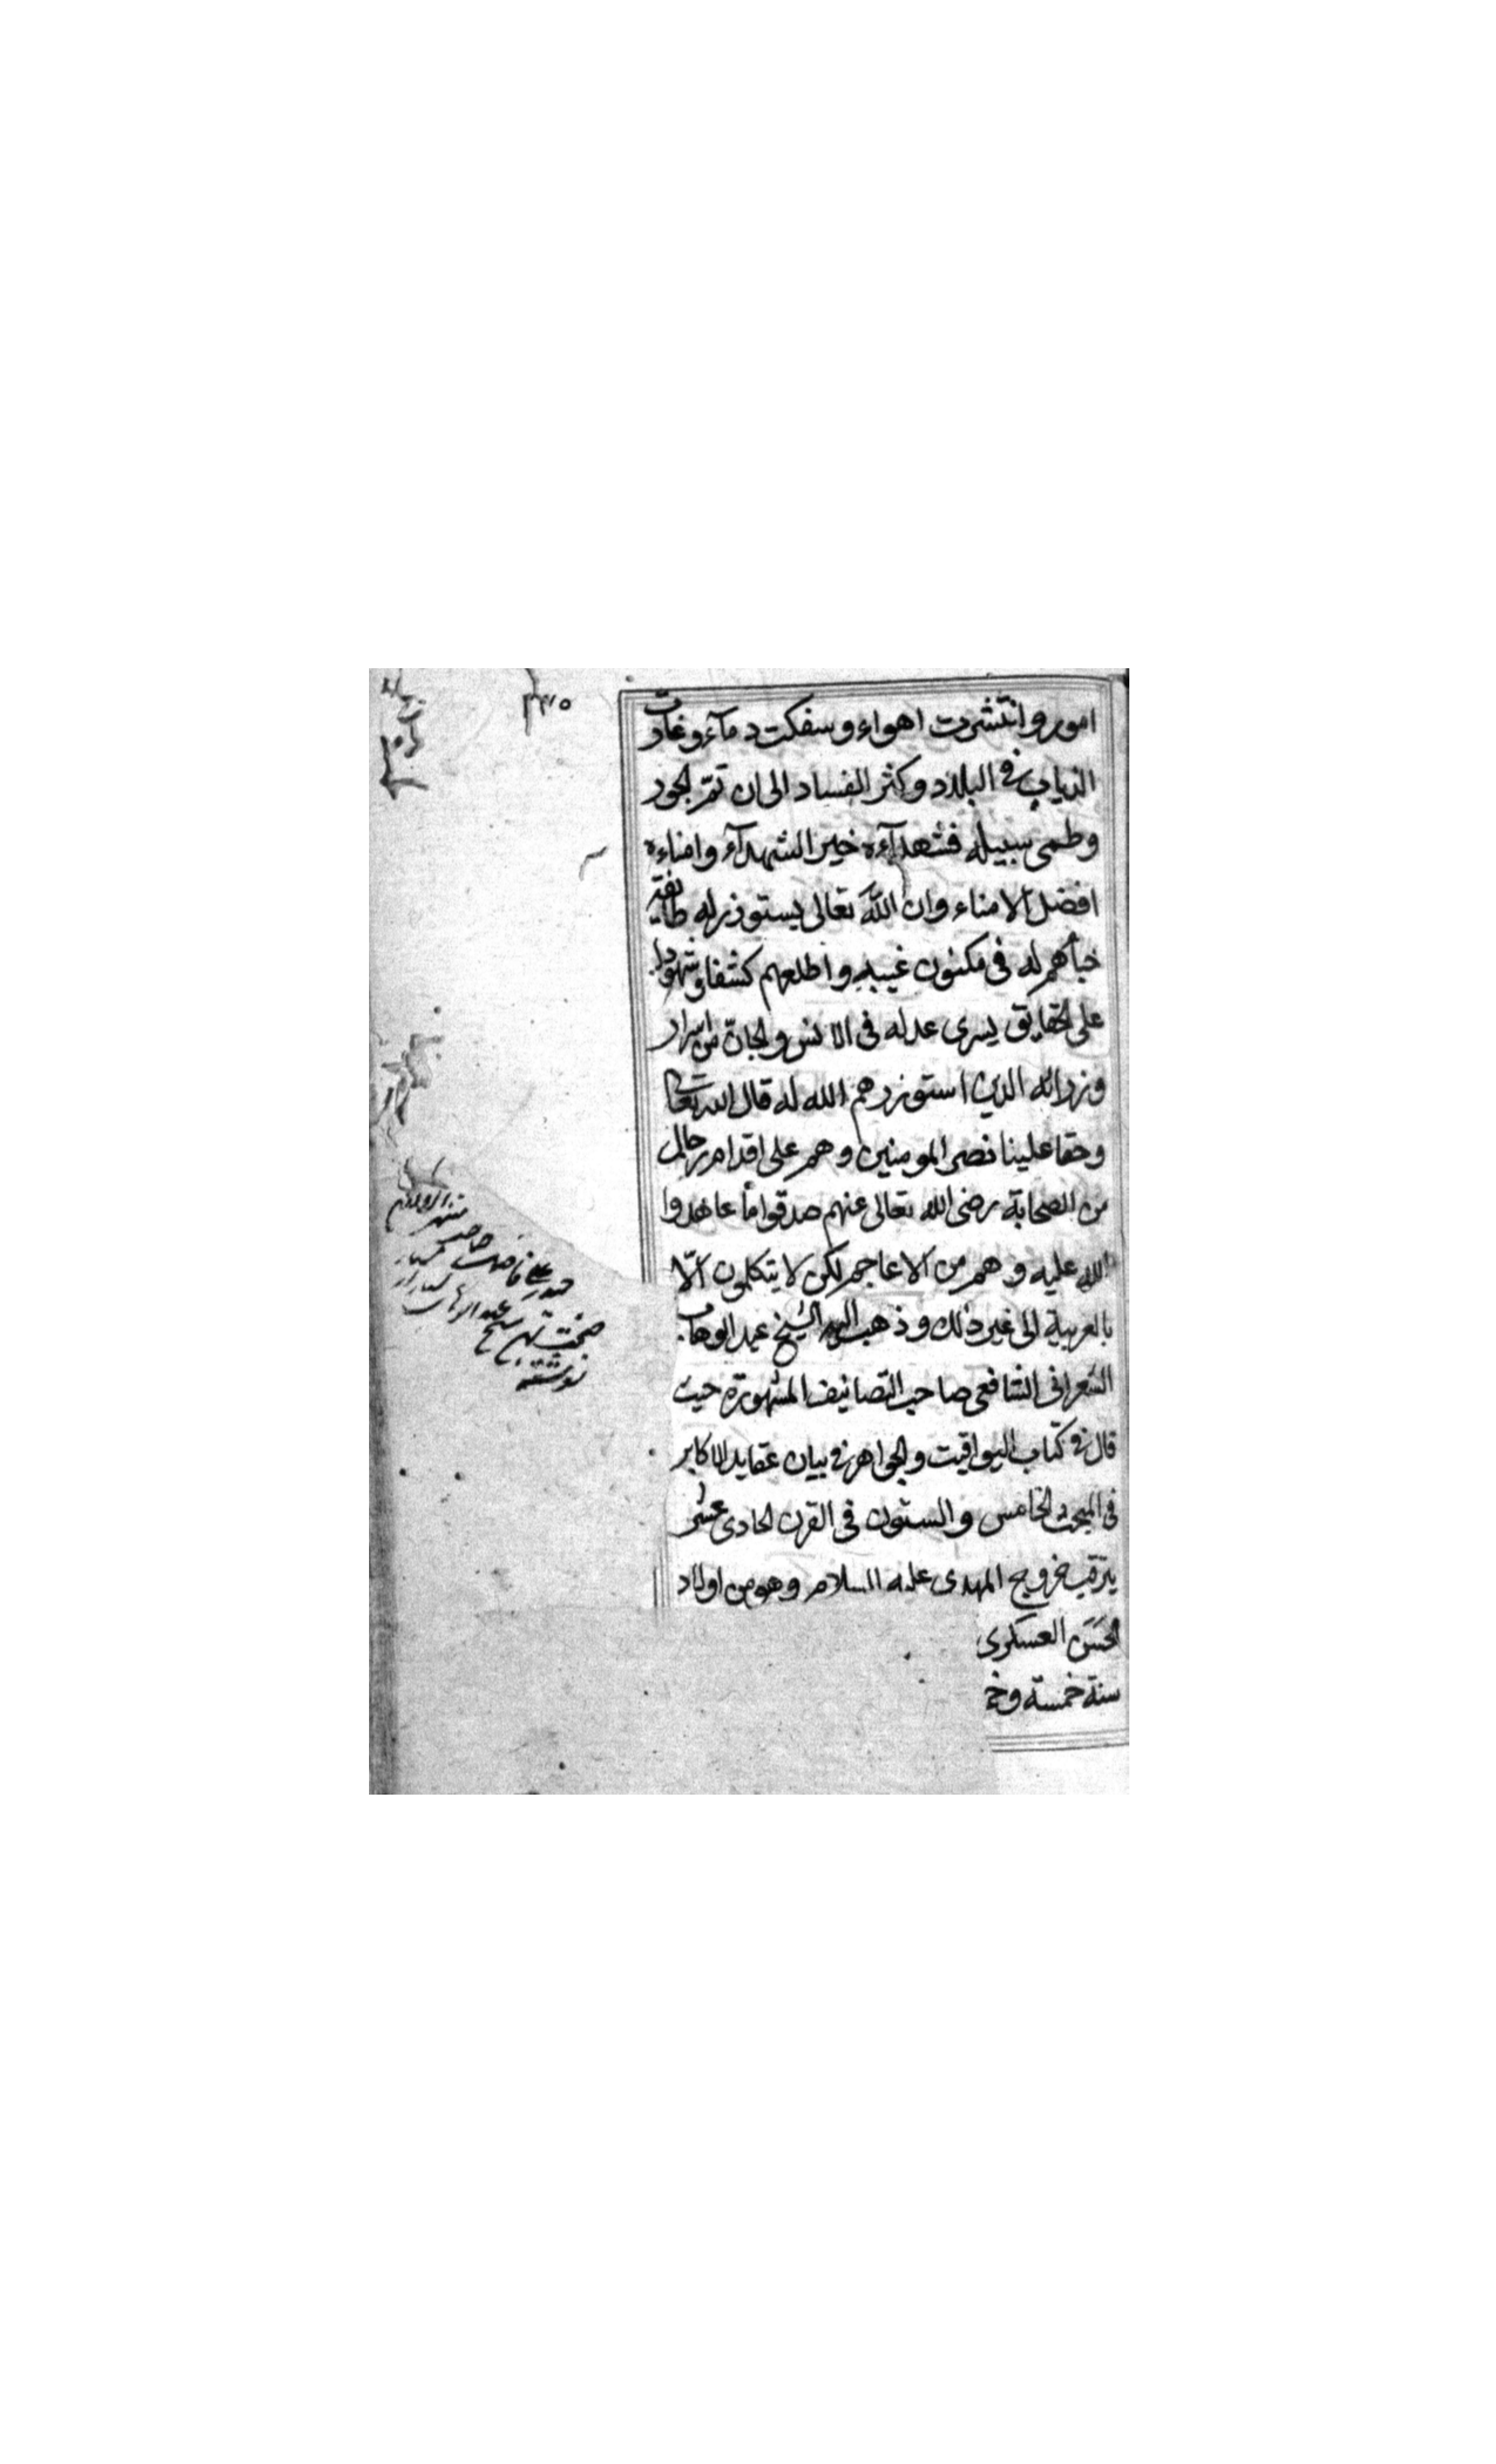 امور وانتشرت اهواء وسفكت دمآء وغارت
الذياب في البلاد وكثر الفساد الى ان تمّ الجور
وطمى سبيله فشهدآءه خير الشهدآء وامناءه
افضل الامناء وان اللّه تعالى يستوزر له طايفة
خبأهم له في مكنون غيبه واطلعهم كشفا وشهودا
على الحقايق يسرى عدله فى الانس والجانّ من اسرار
وزرائه الذين استوزرهم الله له قال الله تعالى
وحقا علينا نصر المومنين وهم على اقدام رجال
من الصحابة رضى الله تعالى عنهم صدقوا ما عاهدوا
الله عليه وهم من الاعاجم لكن لا يتكلمون الّا
بالعربية الى غير ذلك وذهب اليه الشيخ عبد الوهاب
الشعرانى الشافعى صاحب التصانيف المشهورة حيث
قال في كتاب اليواقيت والجواهر في بيان عقايد الاكابر
فى المبحث الخامس والستون فى القرن الحادى عشر
يترقب خروج المهدى عليه السلام وهو من اولاد
الحسن العسكرى
سنة خمسة وخ
شيخ عبد الوهاب
نوشته